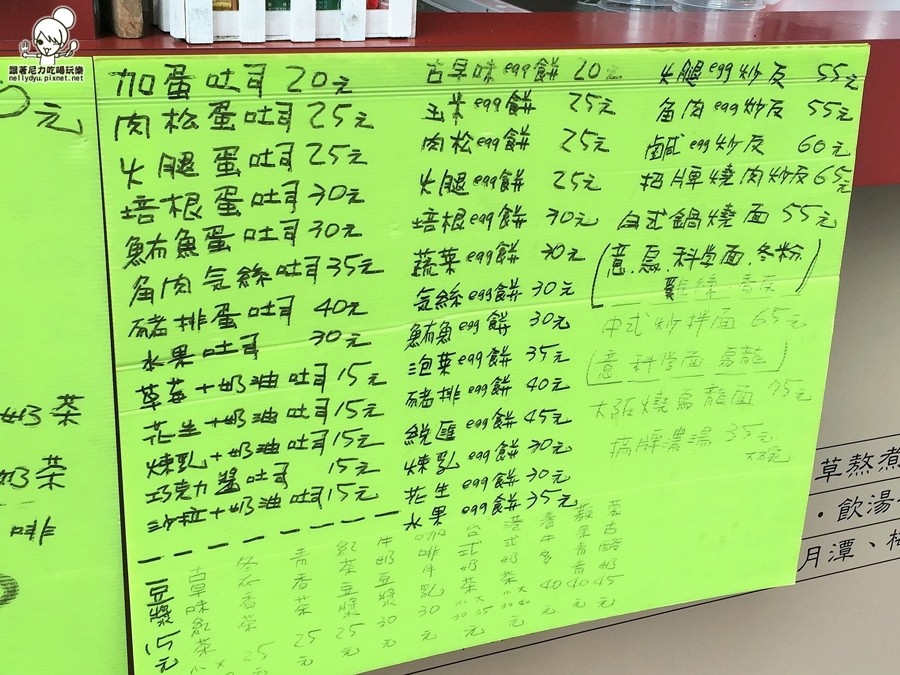 跟著尼力吃喝玩樂
nellydyu.pixnet.net
元
奶茶
奶茶
啡
加蛋吐司 20元
肉松蛋吐司 25元
火腿蛋吐司 25元
培根蛋吐司 30元
鮪魚蛋吐司 30元
角肉気絲吐司 35元
豬排蛋吐司 40元
水果吐司 30元
草莓+奶油吐司 15元
花生+奶油吐司 15元
煉乳+奶油吐司 15元
巧克力醬吐司 15元
沙拉+奶油吐司 15元
古早味egg餅 20元
玉米egg餅 25元
肉松egg餅 25元
火腿egg餅 25元
培根egg餅 30元
蔬菜egg餅 30元
気絲egg餅 30元
鮪魚egg餅 30元
泡菜egg餅 35元
豬排egg餅 40元
egg餅 45元
煉乳egg餅 30元
花生egg餅 30元
水果egg餅 35元
火腿egg炒反 55元
角肉egg炒反 55元
鹹egg炒反 60元
招牌燒肉炒反 65元
台式鍋燒面 55元
(意.烏.科学面.冬粉
雞絲
中式炒拌面 65元
(意 科学面 烏龍)
大阪燒烏龍面 75元
濃湯 35元
豆漿 15元
古早味紅茶 小 大
冬瓜香茶 25元
青香茶 25元
紅茶豆漿 25元
牛奶豆漿 30元
咖啡牛乳 30元
台式奶茶 小30 大35元
港式奶茶 小30 大40元
香牛多 40元
蘋果青 40元
蒙古酸奶 45元
草熬煮
・飲湯
月潭、